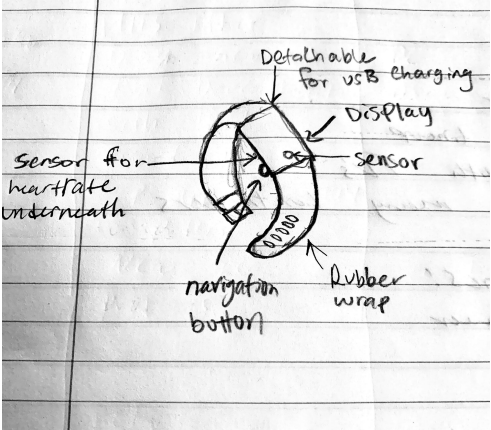 Detachable
for USB charging
Display
sensor
sensor for
heartrate
underneath
navigation
button
Rubber
wrap